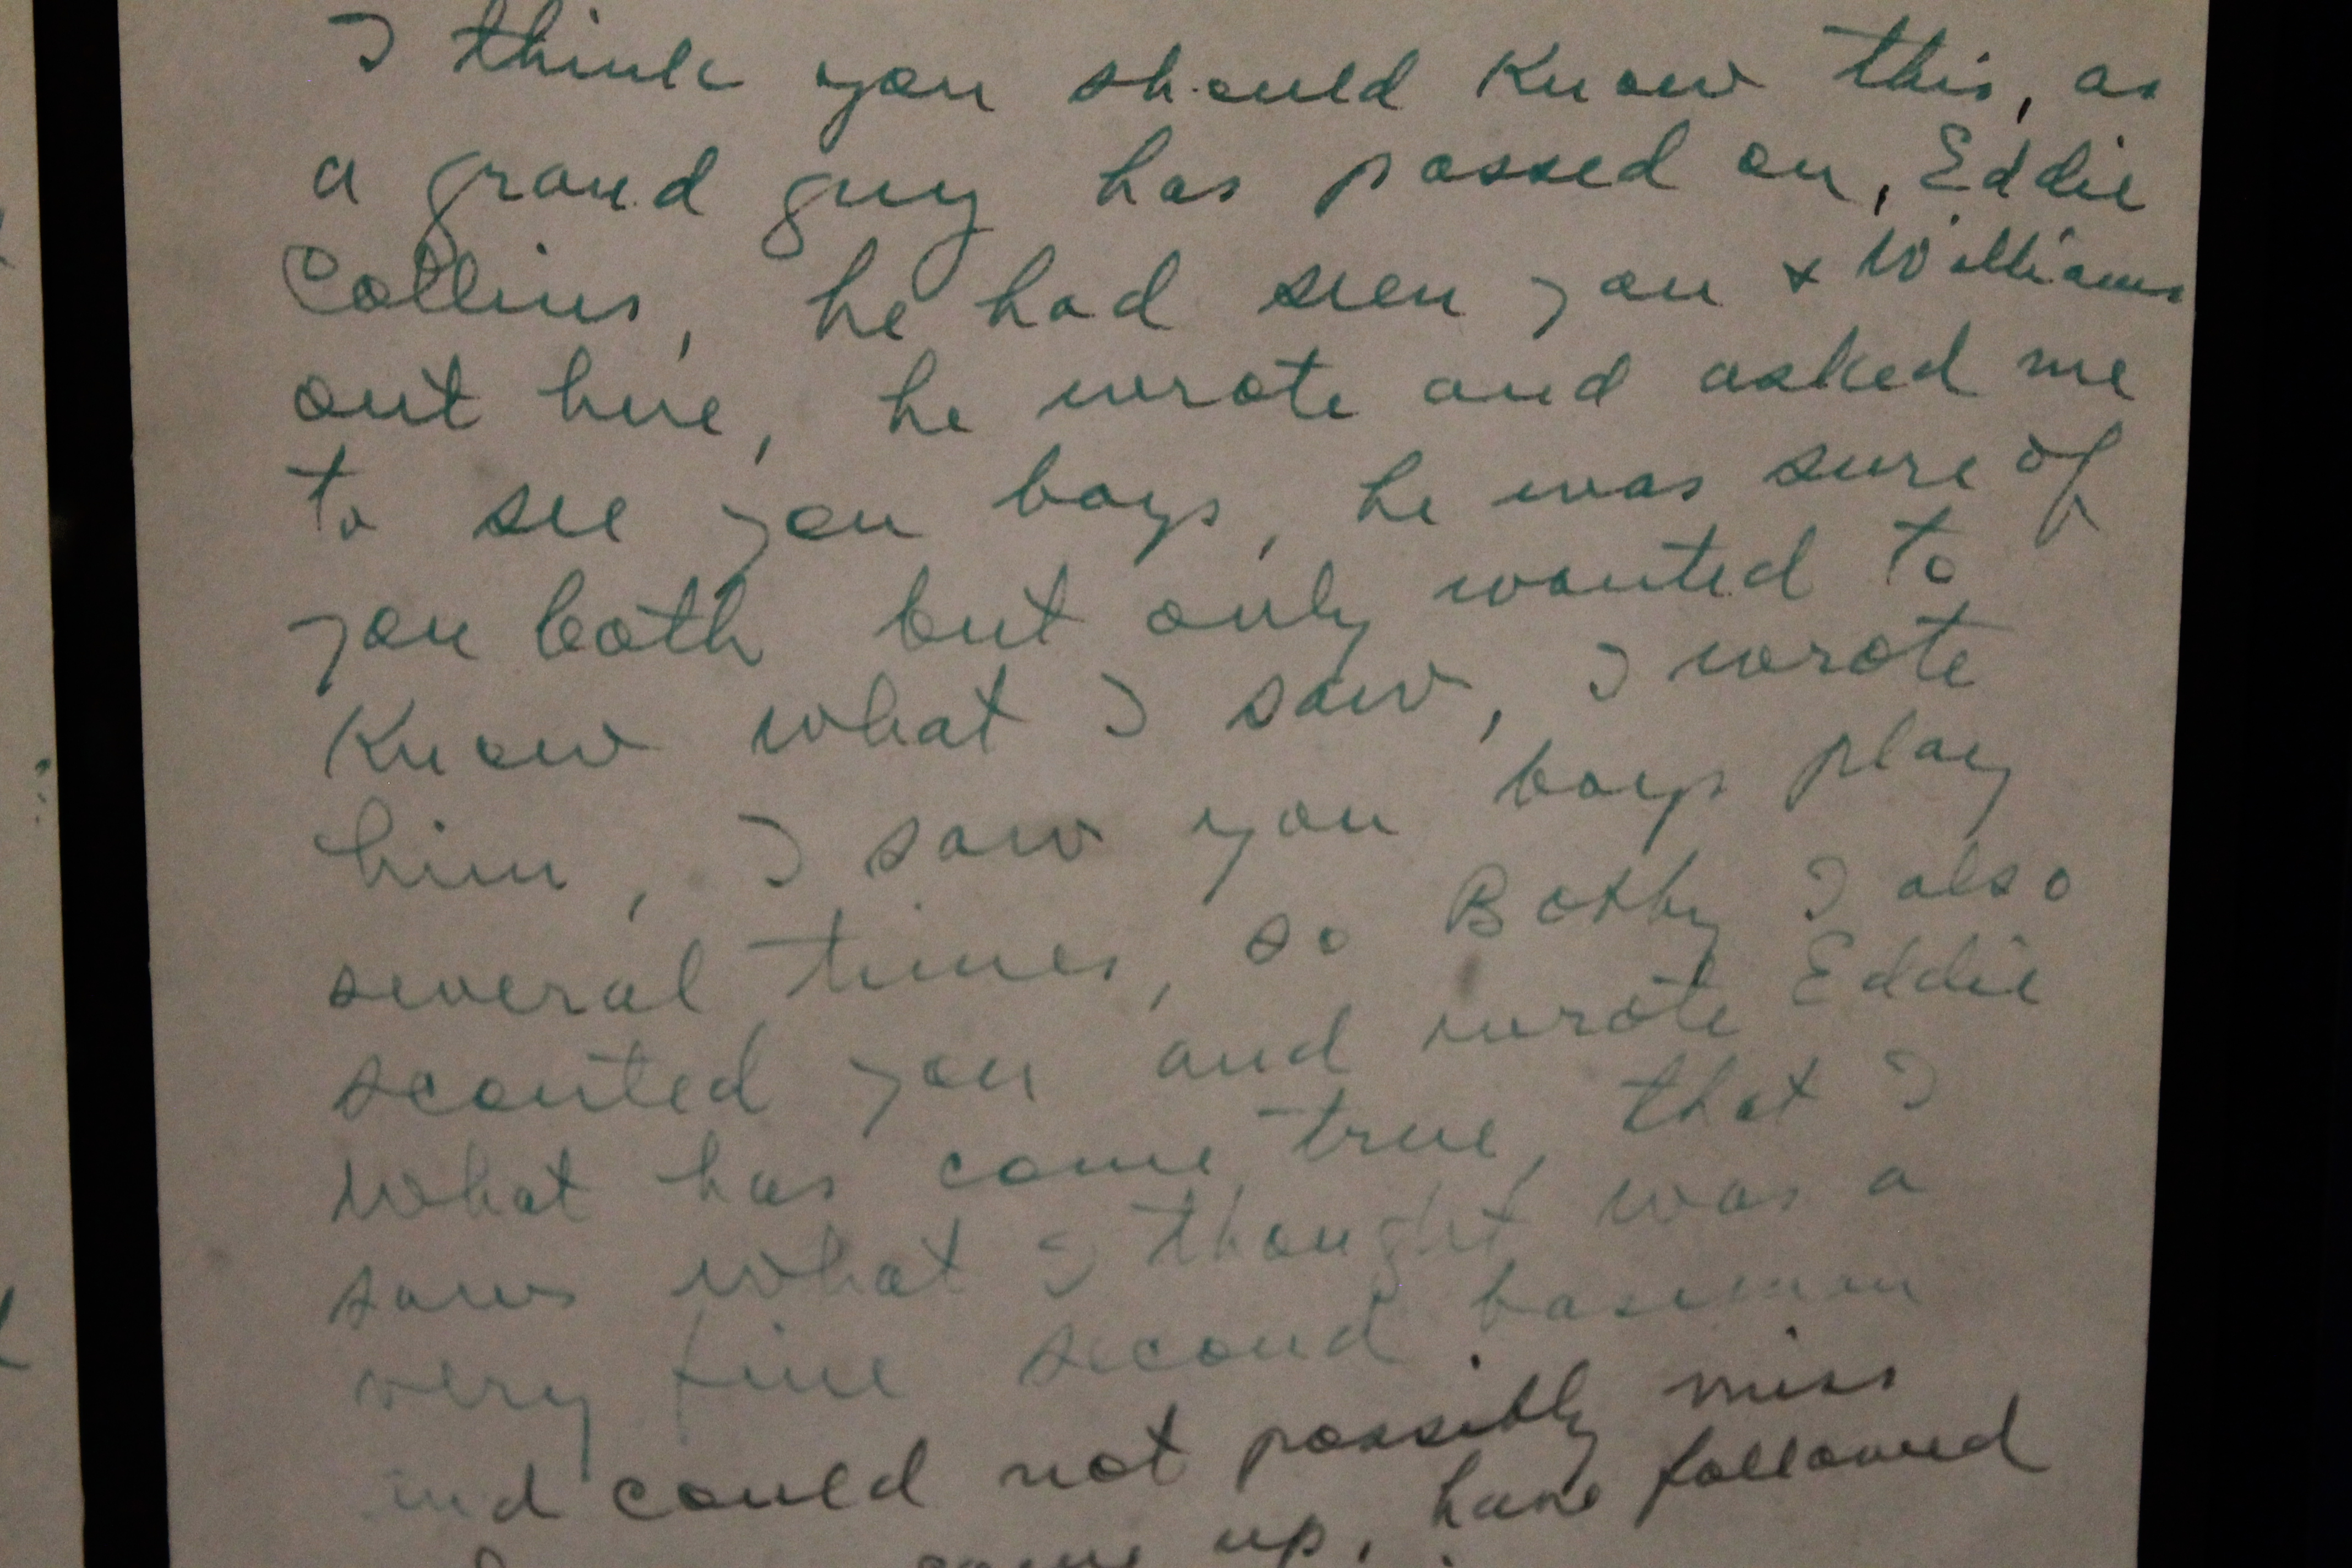 I think you should know this, as
a grand guy has passed on, Eddie
Collins, he had seen you & Williams
out here, he wrote and asked me
to see you boys, he was sure of
you both but only wanted to
know what I saw, I wrote
him, I saw you boys play
several times, so Bobby I also
scouted you and wrote Eddie
what has come true, that I
saw what I thought was a
very fine second baseman
and could not possibly miss
came up, have followed